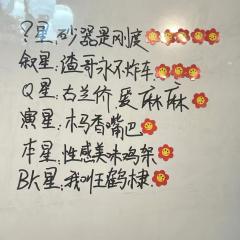 ?星:砂器是刚度
叙星:渣哥永不炸车
Q星:古兰价爱麻麻
演星:木马香嘴巴
本星:性感美味鸡架
BK星:我叫王鹤棣.